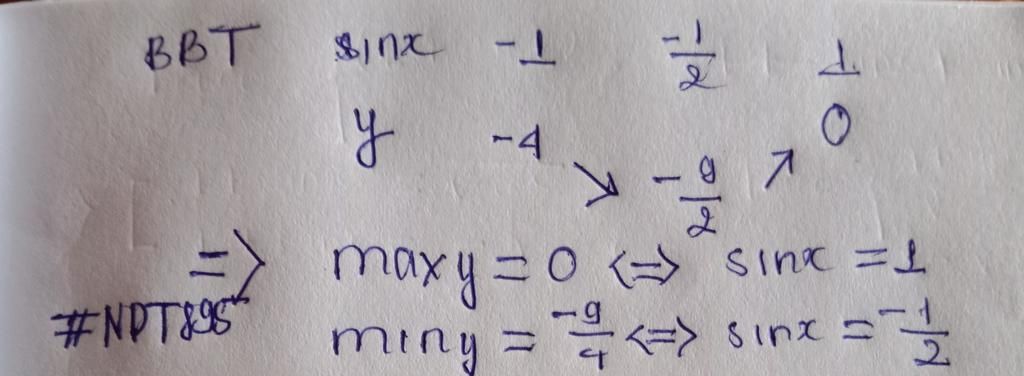 BBT sinx -1 -1/2 1
y -4 ↘ -9/2 ↗ 0
=> maxy = 0 <=> sinx = 1
#NDT895 miny = -9/4 <=> sinx = -1/2